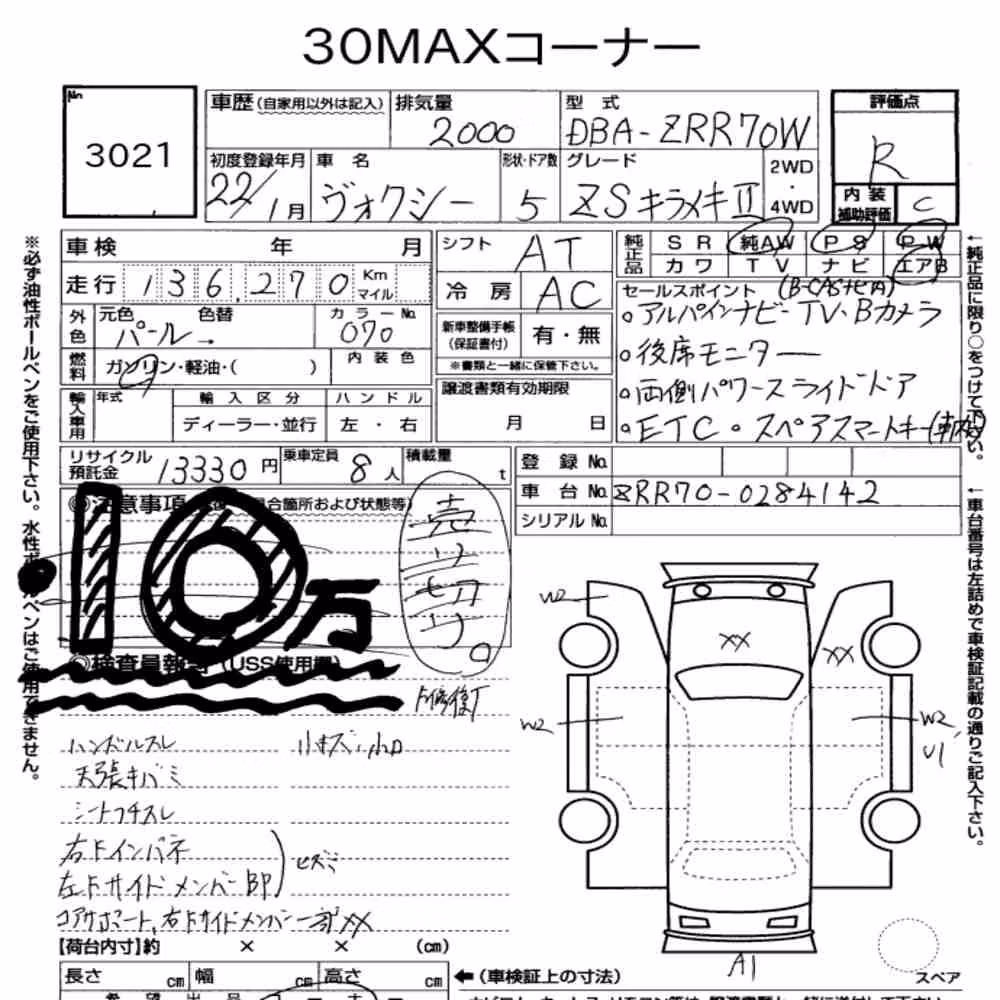 30MAXコーナー
No. 3021
車歴(自家用以外は記入) 排気量 2000 型式 DBA-ZRR70W 評価点 R
初度登録年月 22/1月 車名 ヴォクシー 形状・ドア数 5 グレード ZSキラメキⅡ 2WD・4WD 内装補助評価 C
車検 年 月
走行 136,270 Km マイル
外色 元色 パール → 色替 カラーNo. 070
燃料 ガソリン・軽油・( ) 内装色
輸入車用 年式 輸入区分 ディーラー・並行 ハンドル 左・右
シフト AT
冷房 AC
新車整備手帳(保証書付) 有・無
※書類と一緒に保管下さい。
譲渡書類有効期限
月 日
純正品 SR 純AW PS PW
カワ TV ナビ エアB
セールスポイント (B-CAS
。アルパインナビ-TV・Bカメラ
。後席モニター
。両側パワースライドドア
。ETC。スペアスマートキー(車内)
リサイクル預託金 13330円 乗車定員 8人 積載量 t
登録No.
車台No. ZRR70-0284142
シリアルNo.
◎注意事項 合箇所および状態等)
10万
売り切り。
◎検査員報告(USS使用欄)
ハンドルスレ 小キズ・小凹
天張キバミ
シートフチスレ
右Fインパネ
左Fサイドメンバー即 ヒズミ
コアサポート、右Fサイドメンバー一部XX
【荷台内寸】約 × × (cm)
長さ cm 幅 cm 高さ cm ←(車検証上の寸法)
W2
XX
XX
W2
W2
U1
A1
スペア
※必ず油性ボールペンをご使用下さい。水性ボールペンはご使用できません。
←純正品に限り○をつけて下さい。
←車台番号は左詰めで車検証記載の通りご記入下さい。